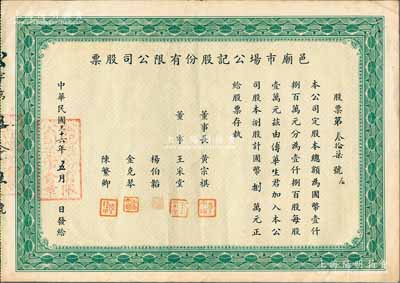 邑廟市場公記股份有限公司股票
股票第叁拾柒號
本公司定股本總額為國幣壹仟
捌百萬元分為壹仟捌百股每股
壹萬元茲由傅華生君加入本公
司股本捌股計國幣捌萬元正
給股票存執
董事長 黃宗祺
董事 王采堂
楊伯韜
金克琴
陳繁卿
中華民國三十六年五月 日發給